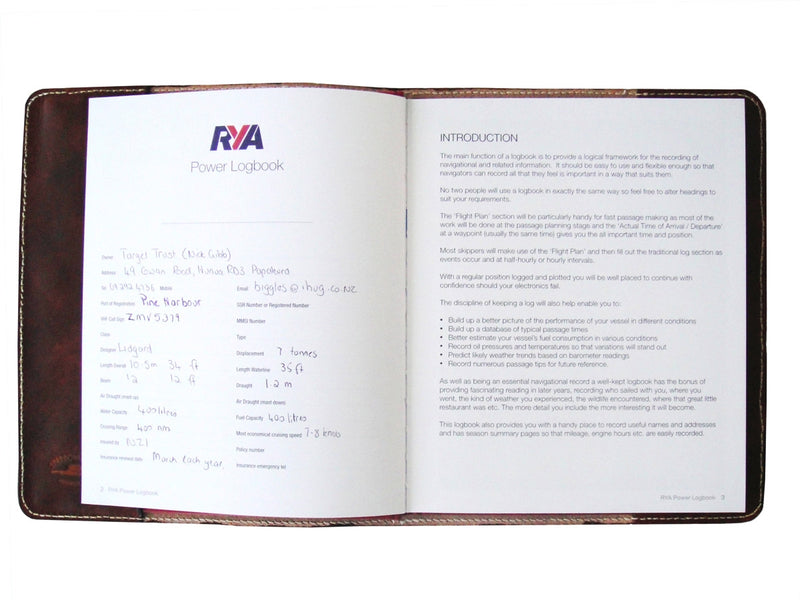 RYA
Power Logbook
Owner Target Trust (Nick Gibb)
Address 49 Ewan Road, Hunua, RD3 Papakura
Tel Mobile Email biggles@ihug.co.nz
Port of Registration Pine Harbour SSR Number or Registered Number
VHF Call Sign ZMV5379 MMSI Number
Class Type
Designer Lidgard Displacement 7 tonnes
Length Overall 10.5m 34 ft Length Waterline 35 ft
Beam 12 12 ft Draught 1.2 m
Air Draught (mast up) Air Draught (mast down)
Water Capacity 400 litres Fuel Capacity 400 litres
Cruising Range 400 nm Most economical cruising speed 7-8 knots
Insured by NZI Policy number
Insurance renewal date March each year. Insurance emergency tel
2 RYA Power Logbook
INTRODUCTION
The main function of a logbook is to provide a logical framework for the recording of
navigational and related information. It should be easy to use and flexible enough so that
navigators can record all that they feel is important in a way that suits them.
No two people will use a logbook in exactly the same way so feel free to alter headings to
suit your requirements.
The 'Flight Plan' section will be particularly handy for fast passage making as most of the
work will be done at the passage planning stage and the 'Actual Time of Arrival / Departure'
at a waypoint (usually the same time) gives you the all important time and position.
Most skippers will make use of the 'Flight Plan' and then fill out the traditional log section as
events occur and at half-hourly or hourly intervals.
With a regular position logged and plotted you will be well placed to continue with
confidence should your electronics fail.
The discipline of keeping a log will also help enable you to:
• Build up a better picture of the performance of your vessel in different conditions
• Build up a database of typical passage times
• Better estimate your vessel's fuel consumption in various conditions
• Record oil pressures and temperatures so that variations will stand out
• Predict likely weather trends based on barometer readings
• Record numerous passage tips for future reference.
As well as being an essential navigational record a well-kept logbook has the bonus of
providing fascinating reading in later years, recording who sailed with you, where you
went, the kind of weather you experienced, the wildlife encountered, where that great little
restaurant was etc. The more detail you include the more interesting it will become.
This logbook also provides you with a handy place to record useful names and addresses
and has season summary pages so that mileage, engine hours etc. are easily recorded.
RYA Power Logbook 3